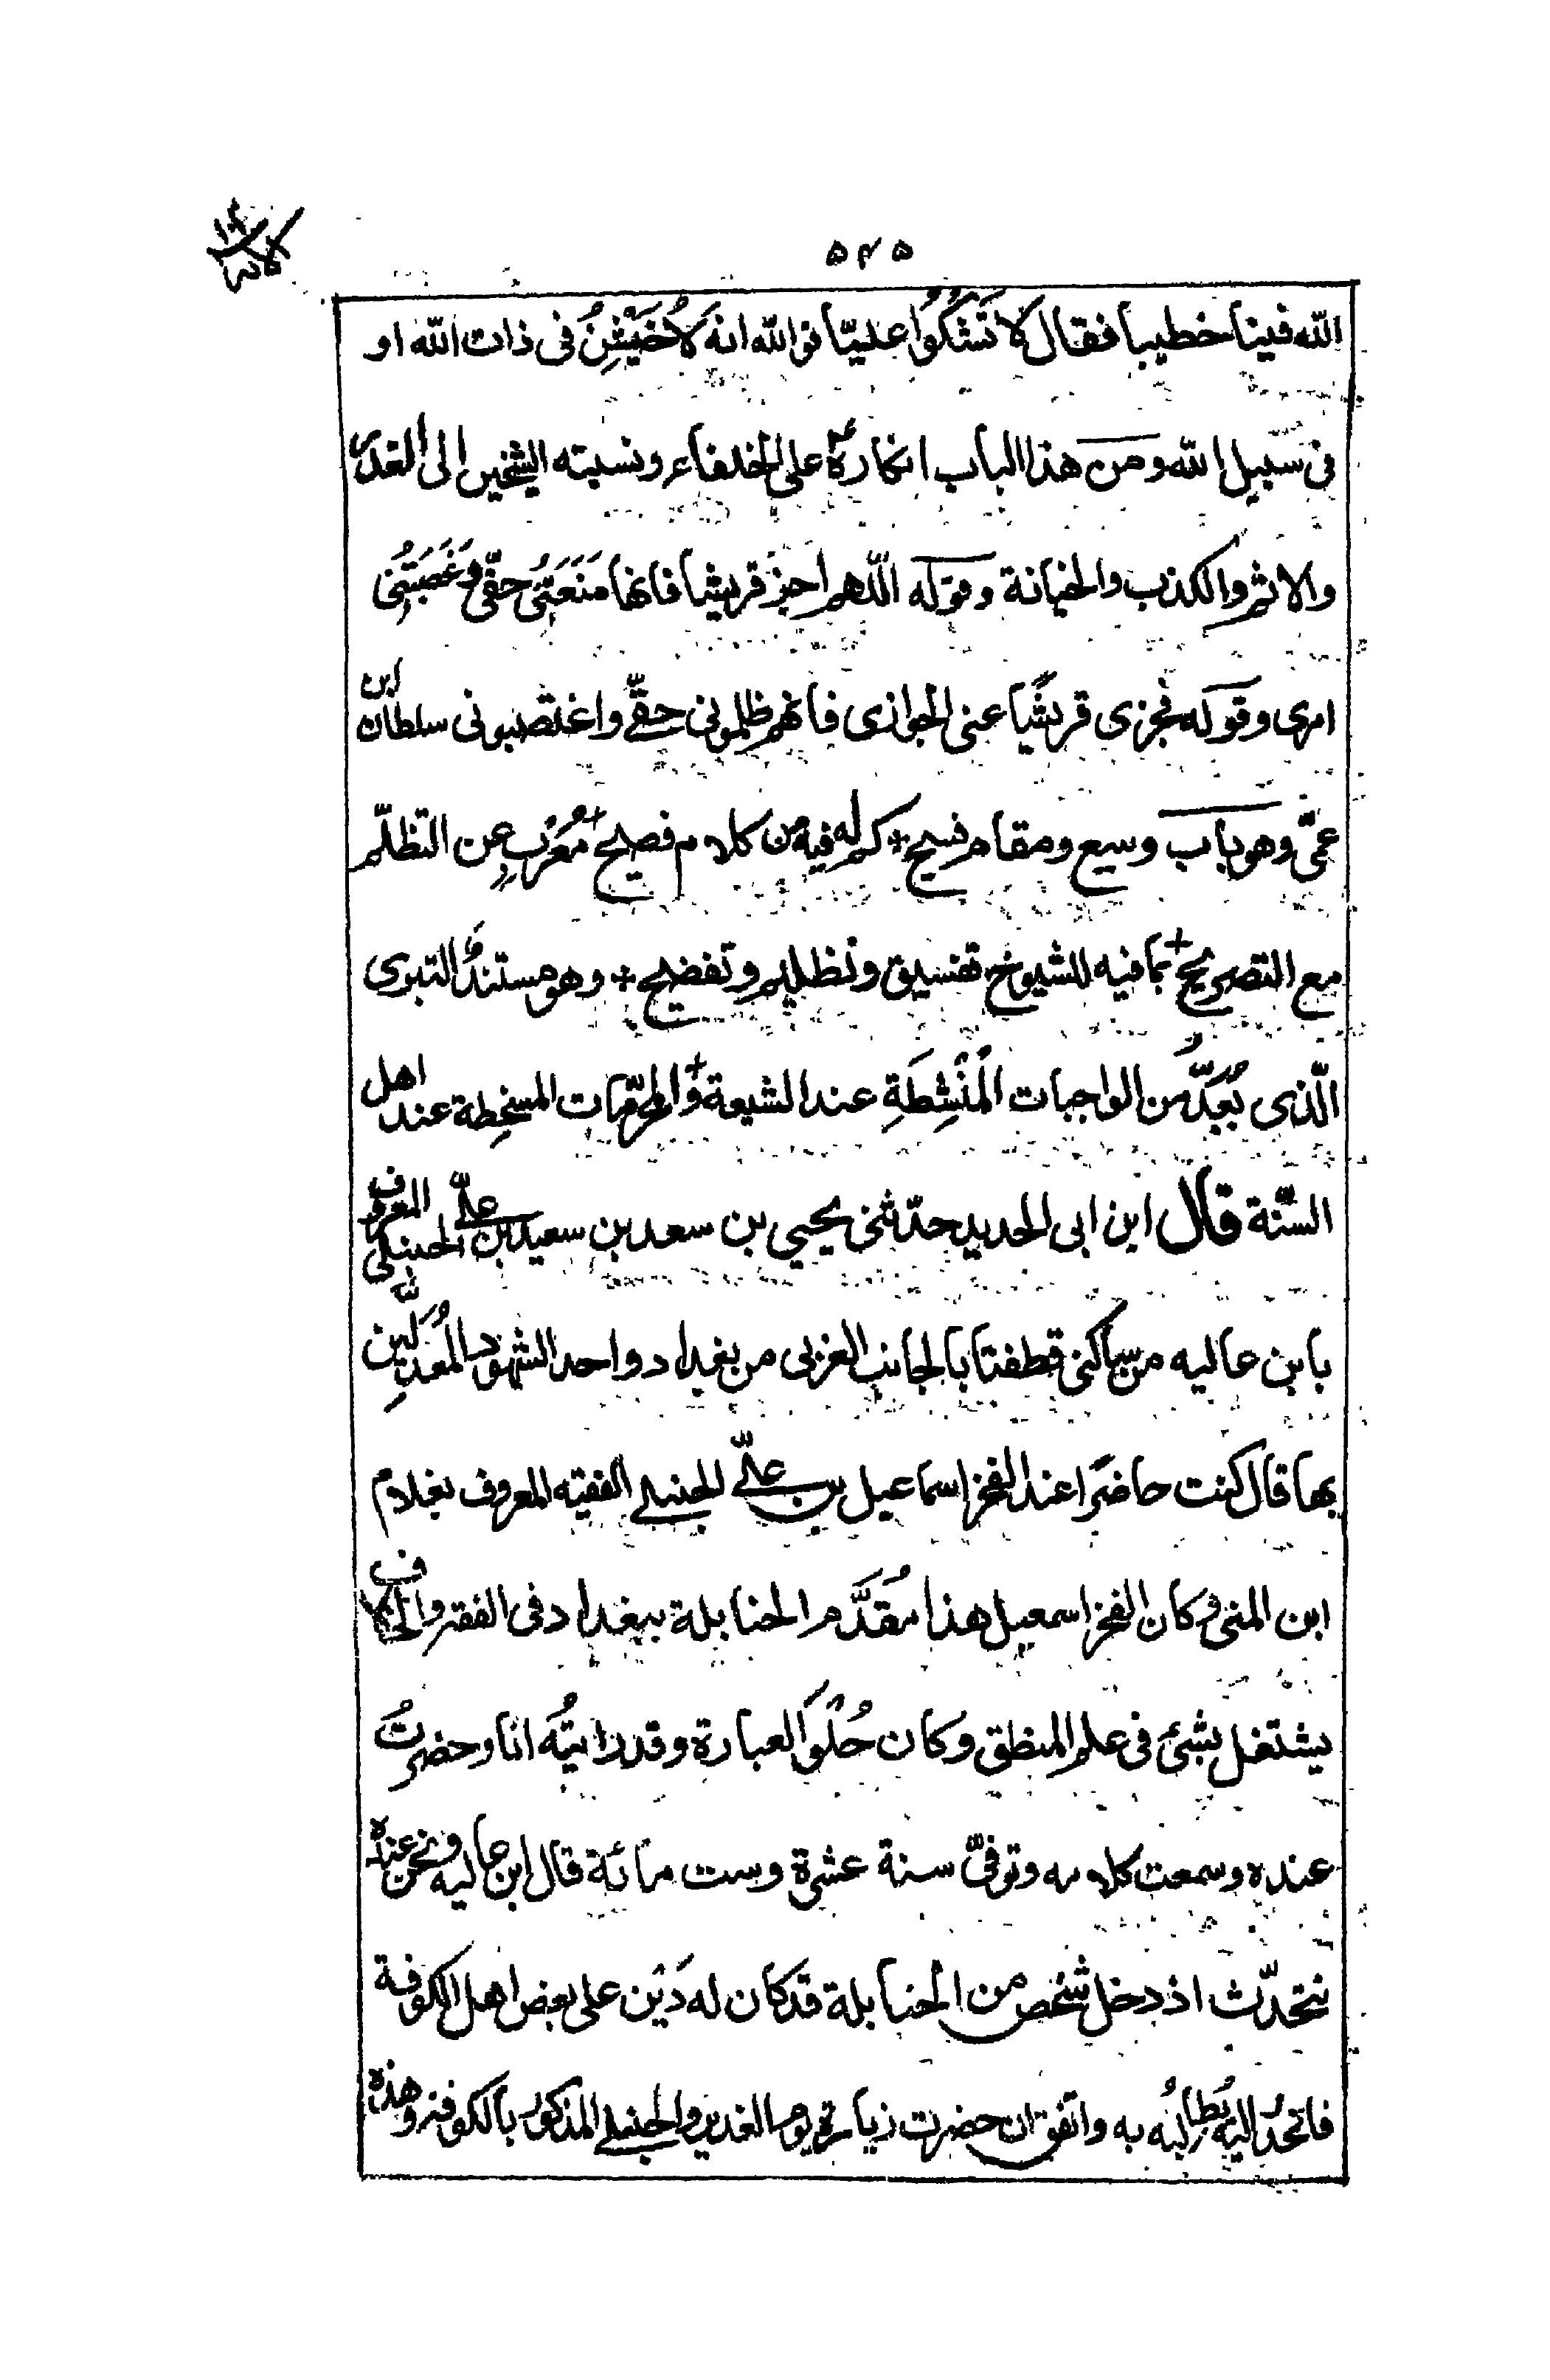 ۵۴۵
الله فينا خطيبا فقال لا تَشكُوا عليّا فوالله انه لَاُخَيْشِنُ فى ذات الله او
فى سبيل الله ومن هذا الباب انكاره على الخلفاء ونسبته الشيخين الى الغدر
والاثم والكذب والخيانة وقوله اللّهم اجز قريشا فانها مَنَعَتْنى حقّى وغَصَبَتْنى
امرى وقوله فجزى قريشًا عنى الجوازى فانهم ظلمونى حقّے واغتصبونى سلطان ابن
عمّى وهو باب وسيع ومقام فسيح + كم له فيه من كلام فصيح + مُعْرِبٍ عن التظلّم
مع التصريح + بما فيه للشيوخ تفسيق وتظليم وتفضيح + وهو مستند التبرى
الّذى يُعَدّ من الواجبات الْمُنْشِطَةِ عند الشيعة + والمحرّمات المسخطة عند اهل
السّنّة قال ابن ابى الحديد حدّثنى يحيى بن سعد بن سعيد بن علىّ الحنبلى المعروف
بابن عاليه من ساكنى قطفتا بالجانب الغربى من بغداد واحد الشهود المُعدَّلين
بها قال كنت حاضرًا عند الفخر اسماعيل بن علىّ الحنبلے الفقيه المعروف بغلام
ابن المنى وكان الفخر اسمعيل هذا مُقدَّم الحنابلة ببغداد فى الفقه والخلاف
يشتغل بشئ فى علم المنطق وكان حُلْوَ العبارة وقد رايتُه انا وحضرتُ
عنده وسمعت كلامه وتوفىّ سنة عشرة وست مائة قال ابن عاليه ونحن عنده
نتحدّث اذ دخل شخص من الحنابلة قد كان له دَيْن على بعض اهل الكوفة
فانحدر اليه يُطالِبُه به واتفق ان حضرت زيارة يوم الغدير والحنبلے المذكور بالكوفة وهذه